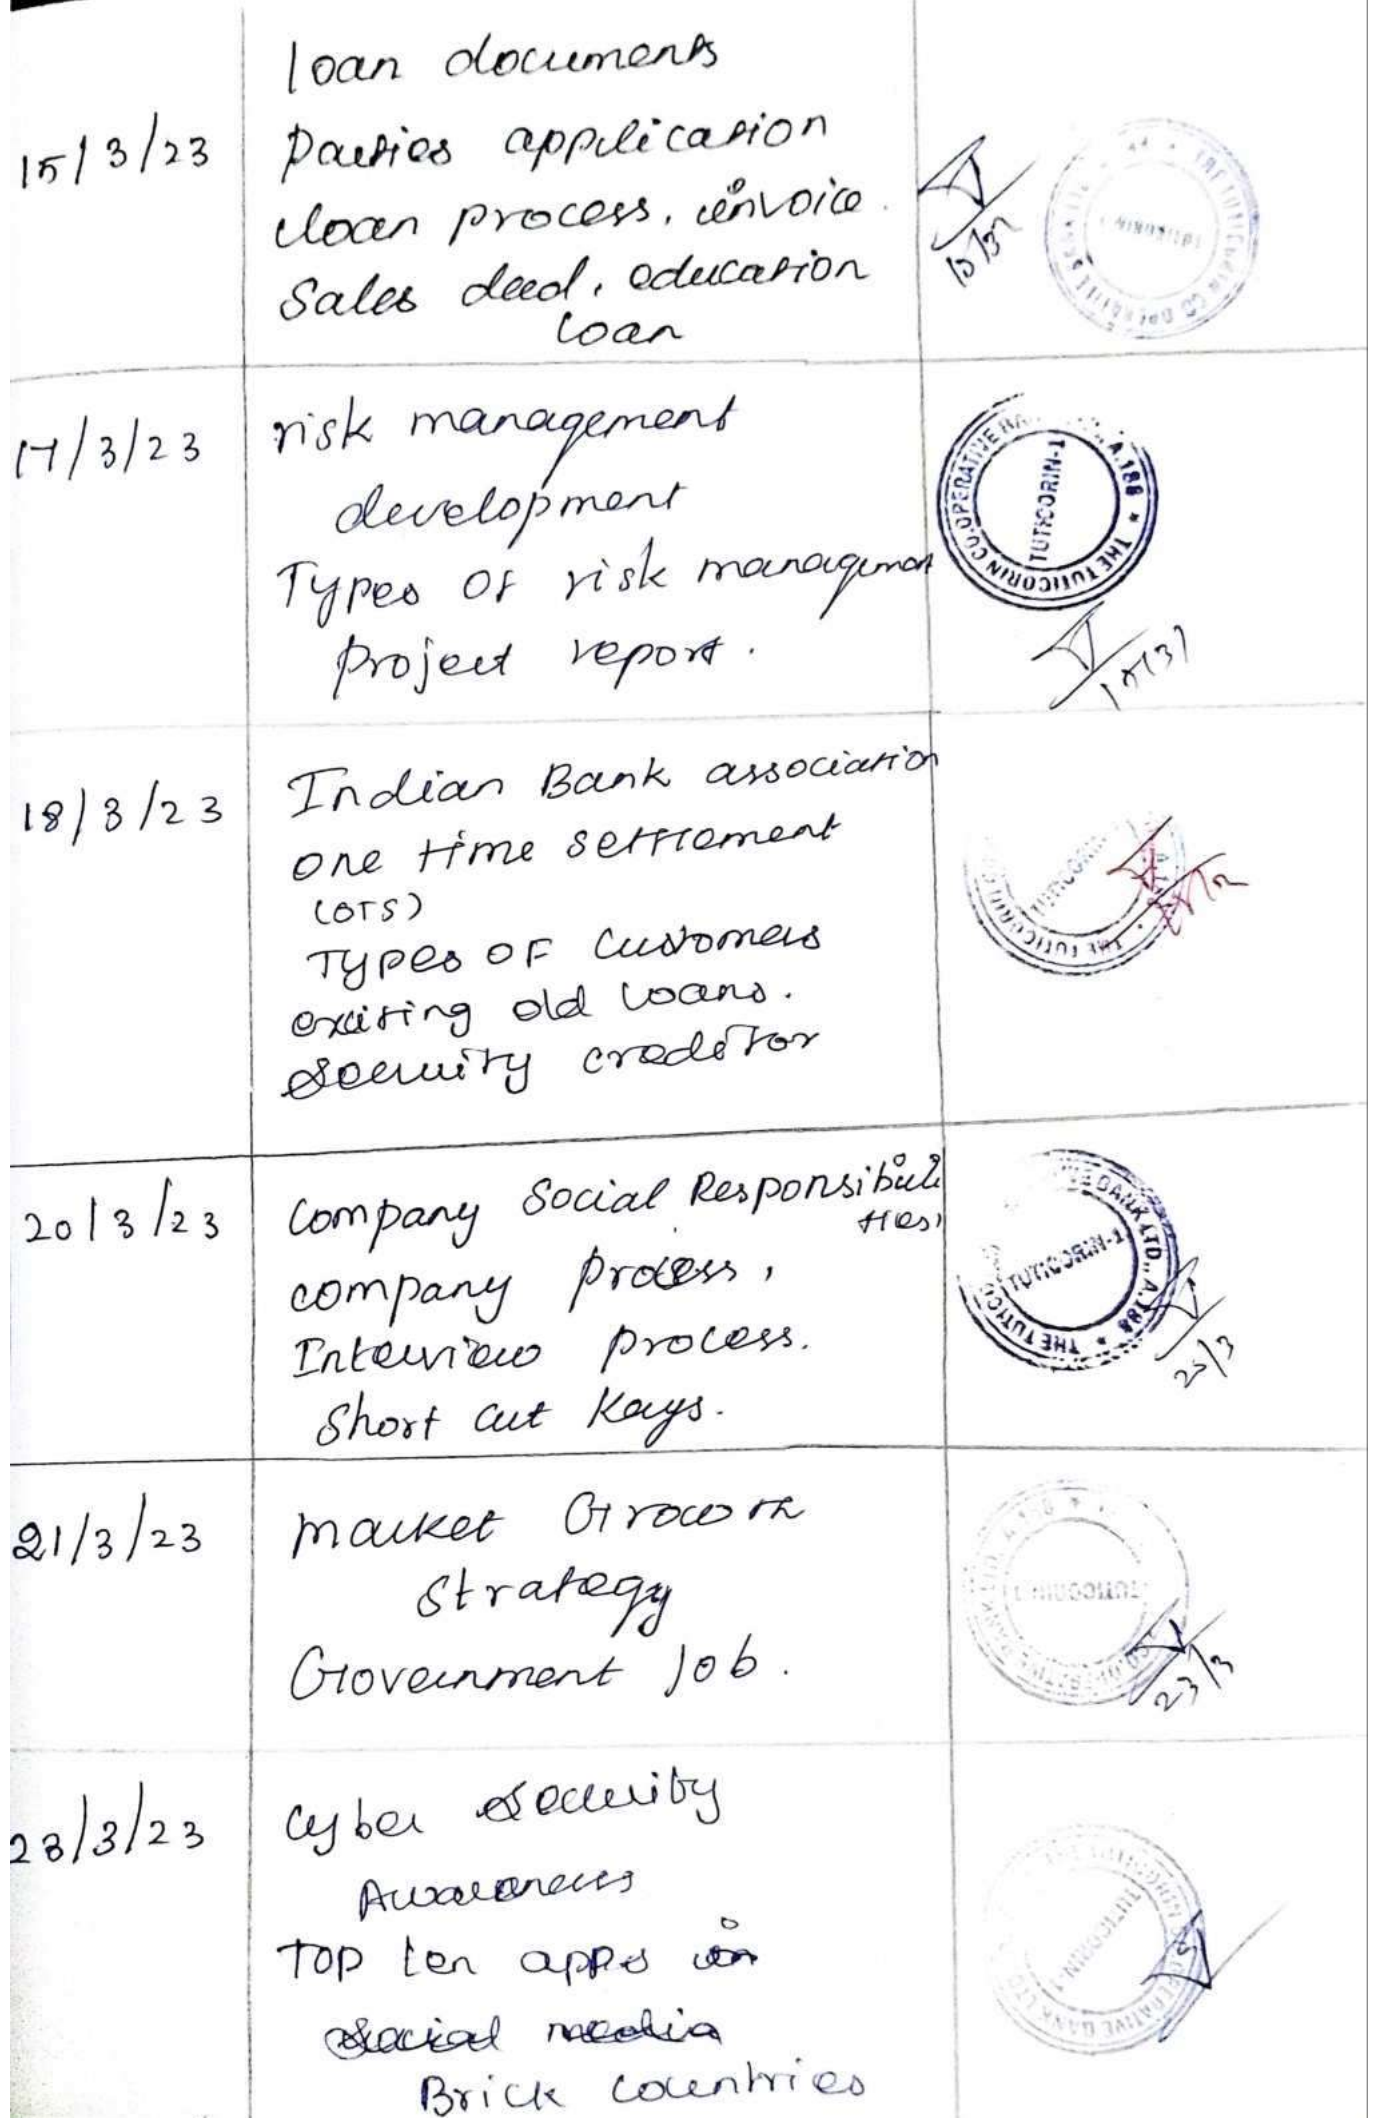 loan documents
15/3/23
Parties application
loan process, invoice.
Sales deed, education
loan
15/3
17/3/23
risk management
development
Types of risk management
project report.
THE TUTICORIN CO.OPERATIVE BA A.188 *
TUTICORIN-1
17/3
18/3/23
Indian Bank association
one time settlement
(OTS)
Types OF Customers
exciting old loans.
Security creditor
THE TUTICORIN
TUTICORIN
20/3/23
Company Social Responsibili
ties,
company process,
Interview process.
Short cut Keys.
THE TUTICO VE BANK LTD., A.188 *
TUTICORIN-1
20/3
21/3/23
Market Growth
Strategy
Government Job.
TUTICORIN-1
23/3
23/3/23
Cyber Security
Awareness
TOP ten apps in
social media
Brick countries
THE TUTICORIN CO.OPERATIVE BANK LTD
TUTICORIN-1